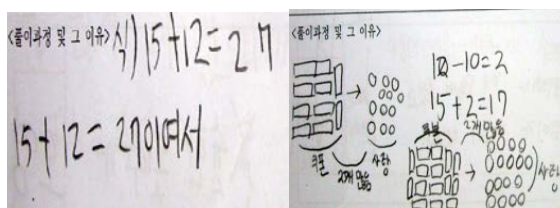 <풀이과정 및 그 이유> 식) 15+12=27
15+12=27이여서
<풀이과정 및 그 이유>
12-10=2
15+2=17
쿠폰
2개 많음
사탕
쿠폰
2개 많음
사탕